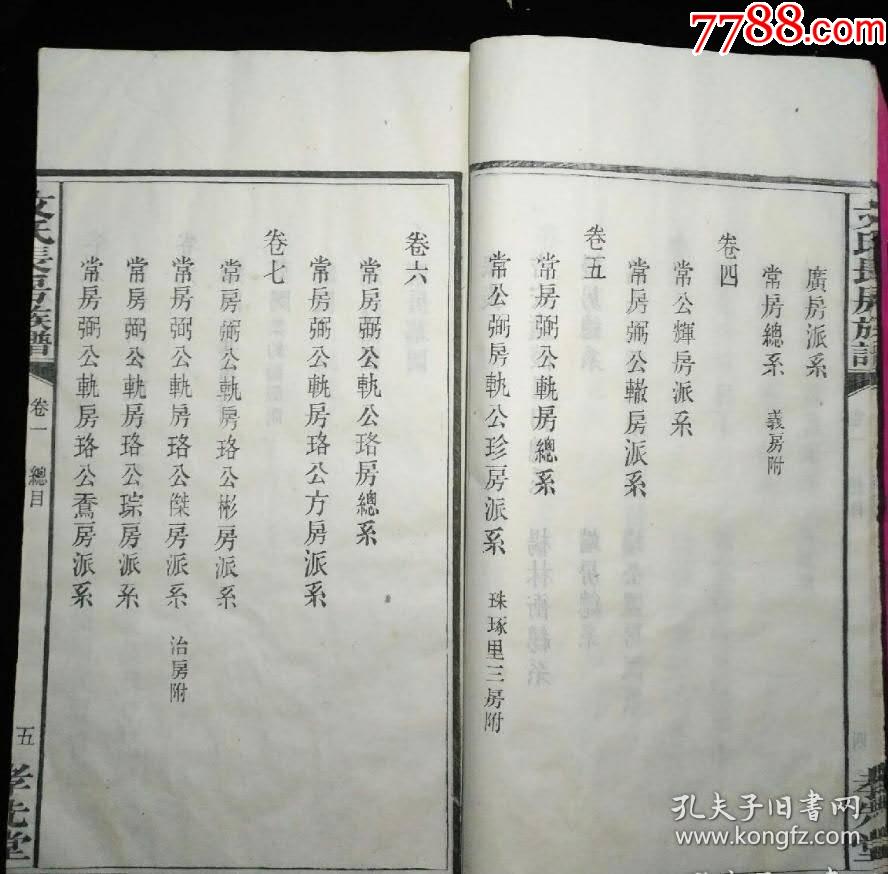 7788.com
文氏長房族譜
四
廣房派系
常房總系 義房附
卷四
常公輝房派系
常房弼公轍房派系
卷五
常房弼公軌房總系
常公弼房軌公珍房派系 珠琢里三房附
卷六
常房弼公軌公珞房總系
常房弼公軌房珞公方房派系
卷七
常房弼公軌房珞公彬房派系
常房弼公軌房珞公傑房派系 治房附
常房弼公軌房珞公琮房派系
常房弼公軌房珞公鴌房派系
文氏長房族譜
卷一 總目
五
孝先堂
孔夫子旧書网
www.kongfz.com